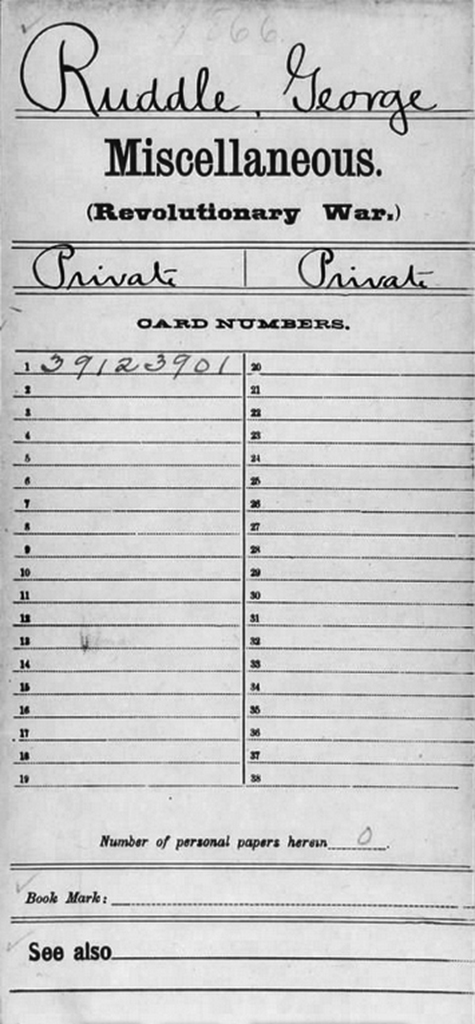 Ruddle, George
Miscellaneous.
(Revolutionary War.)
Private | Private
CARD NUMBERS.
1 39123901 20
2 21
3 22
4 23
5 24
6 25
7 26
8 27
9 28
10 29
11 30
12 31
13 32
14 33
15 34
16 35
17 36
18 37
19 38
Number of personal papers herein 0.
Book Mark:
See also